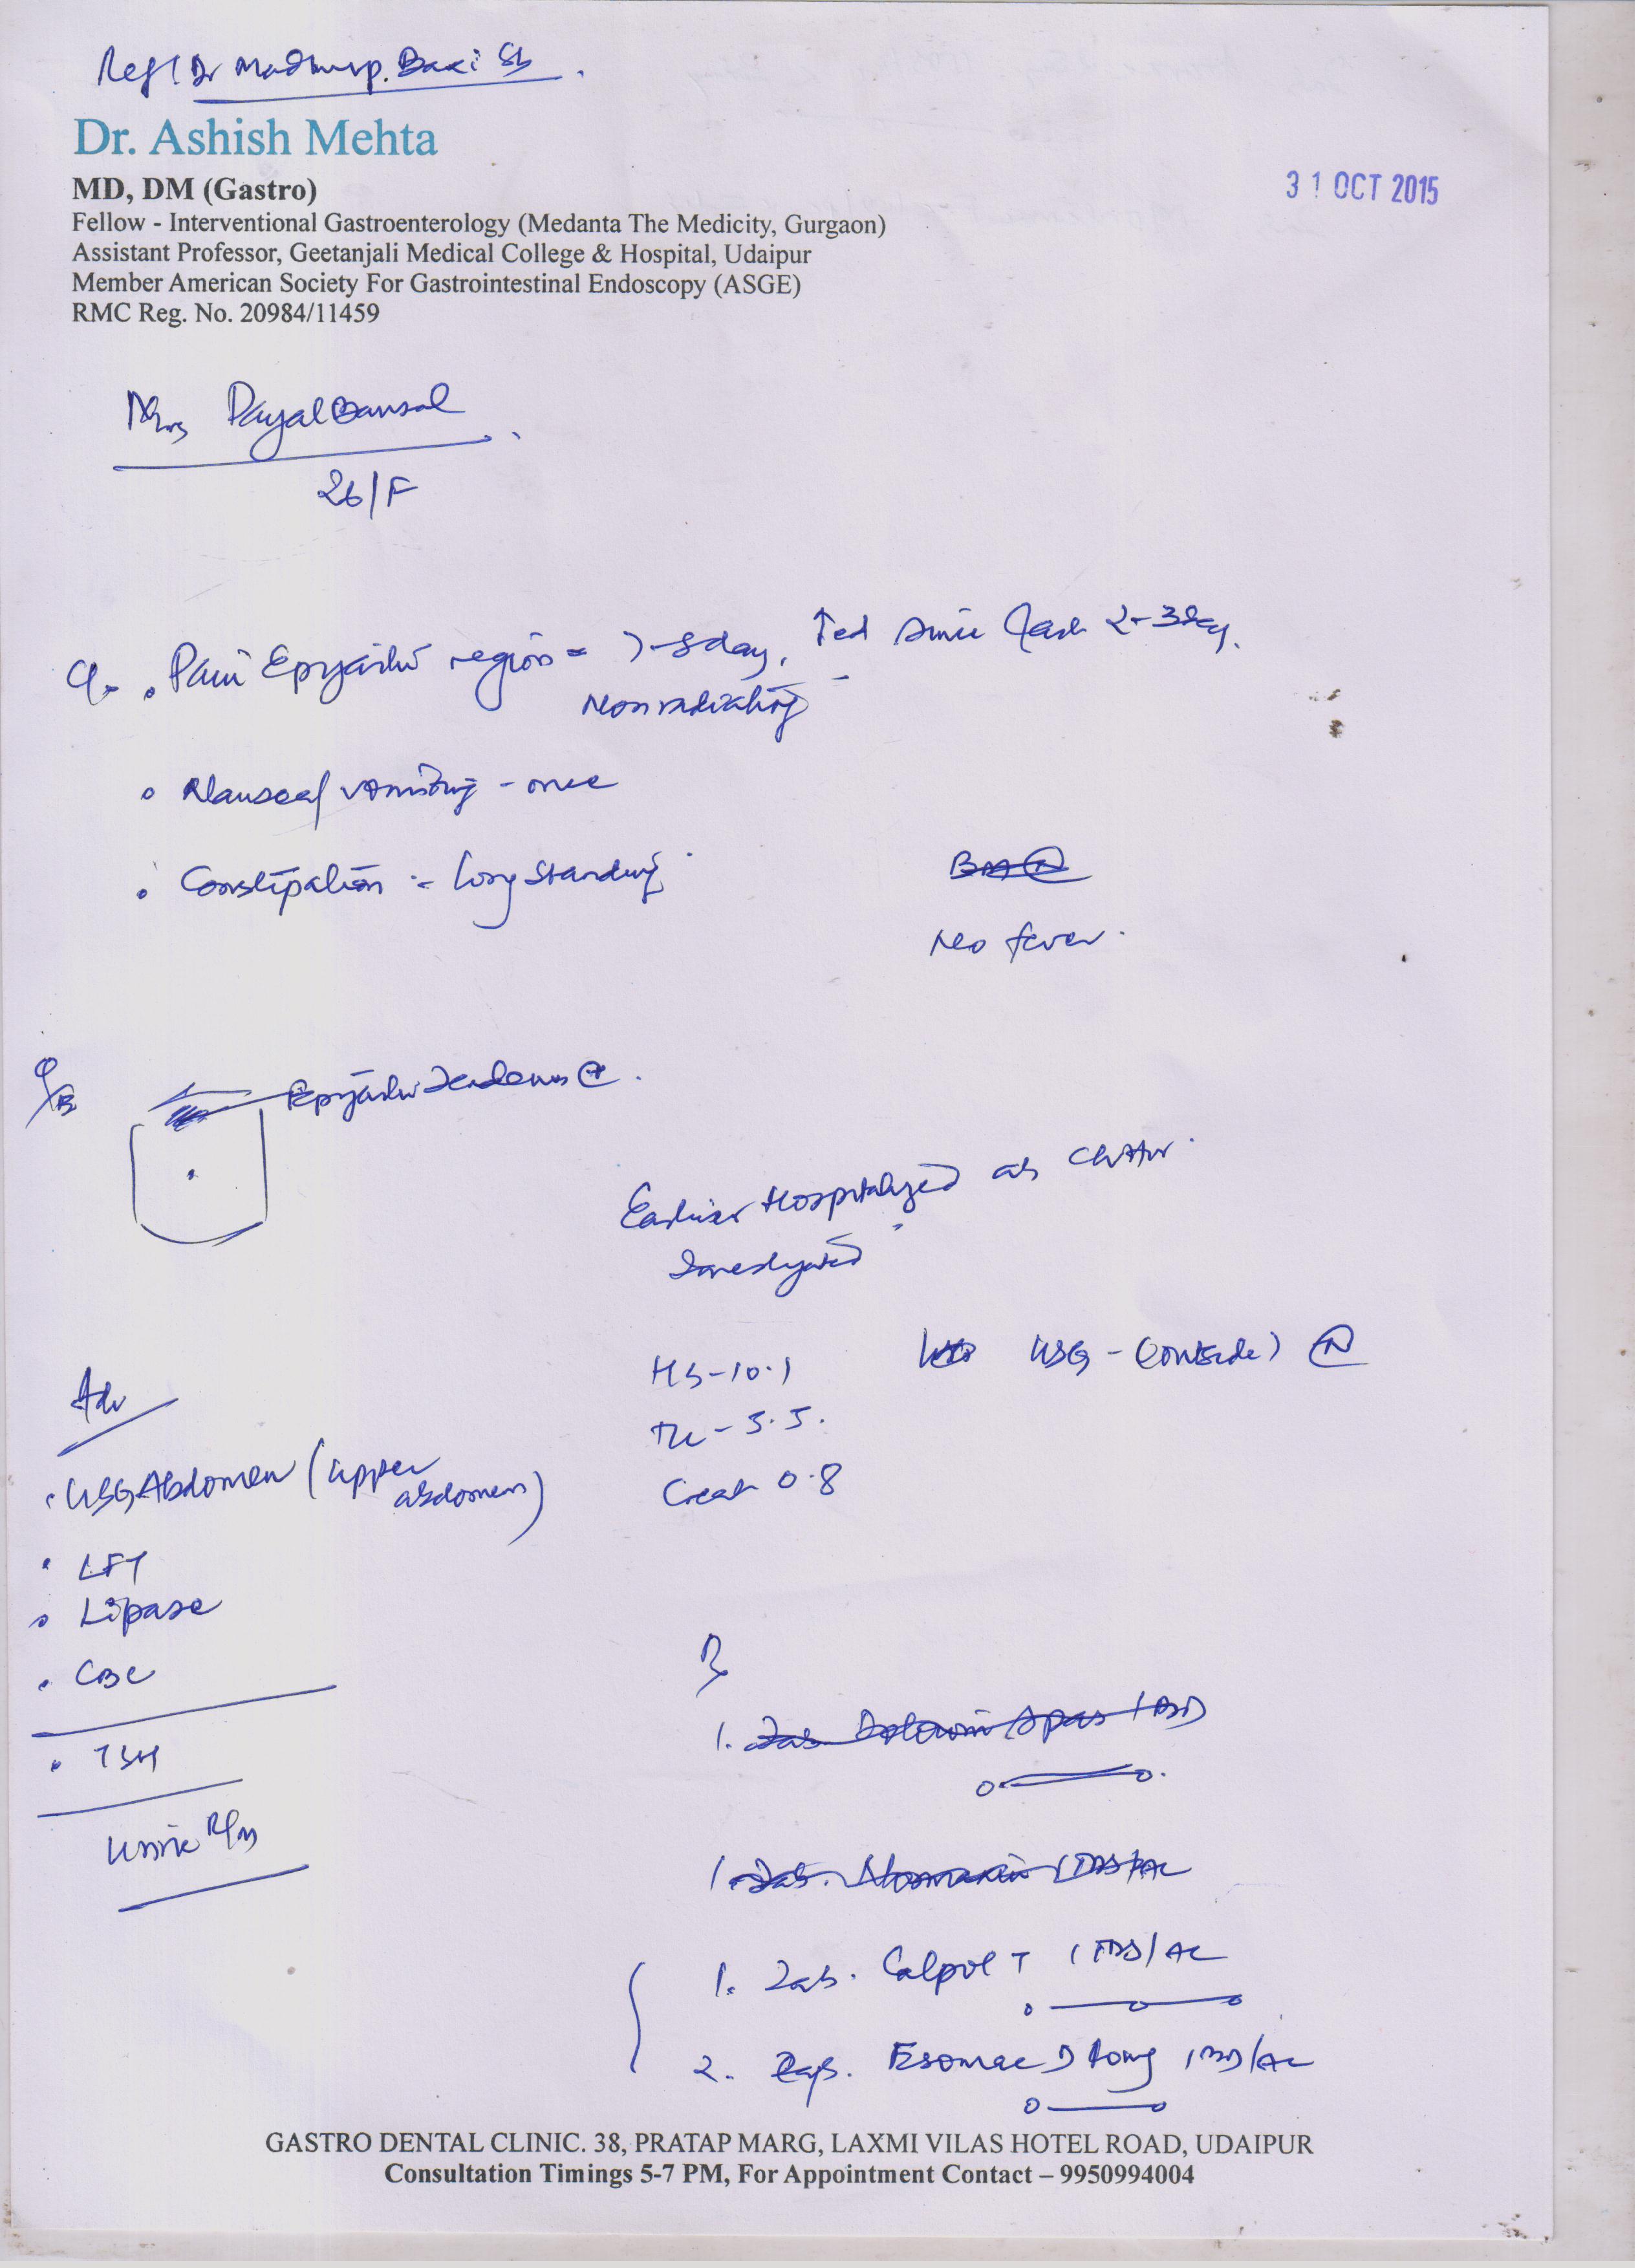 Ref / Dr Madhup. Baxi Sb
Dr. Ashish Mehta
MD, DM (Gastro)
31 OCT 2015
Fellow - Interventional Gastroenterology (Medanta The Medicity, Gurgaon)
Assistant Professor, Geetanjali Medical College & Hospital, Udaipur
Member American Society For Gastrointestinal Endoscopy (ASGE)
RMC Reg. No. 20984/11459
Mrs Payal Bansal
26/F
Pain Epigastric region = 7-8 day, ↑ed since last 2-3 day.
Non radiating
Nausea/vomiting - once
Constipation - long standing
No fever.
Epigastric tenderness (+).
Earlier Hospitalized at
Investigated
Adv
Hb-10.1
USG - (outside) (N)
TLC - 5.5.
USG Abdomen (upper abdomen)
Creat 0.8
LFT
Lipase
CBC
TSH
Urine R/M
Rx
1. Tab. Calpol T 1 TDS/AC
2. Cap. Esomac D 40mg 1 BD/AC
GASTRO DENTAL CLINIC. 38, PRATAP MARG, LAXMI VILAS HOTEL ROAD, UDAIPUR
Consultation Timings 5-7 PM, For Appointment Contact – 9950994004